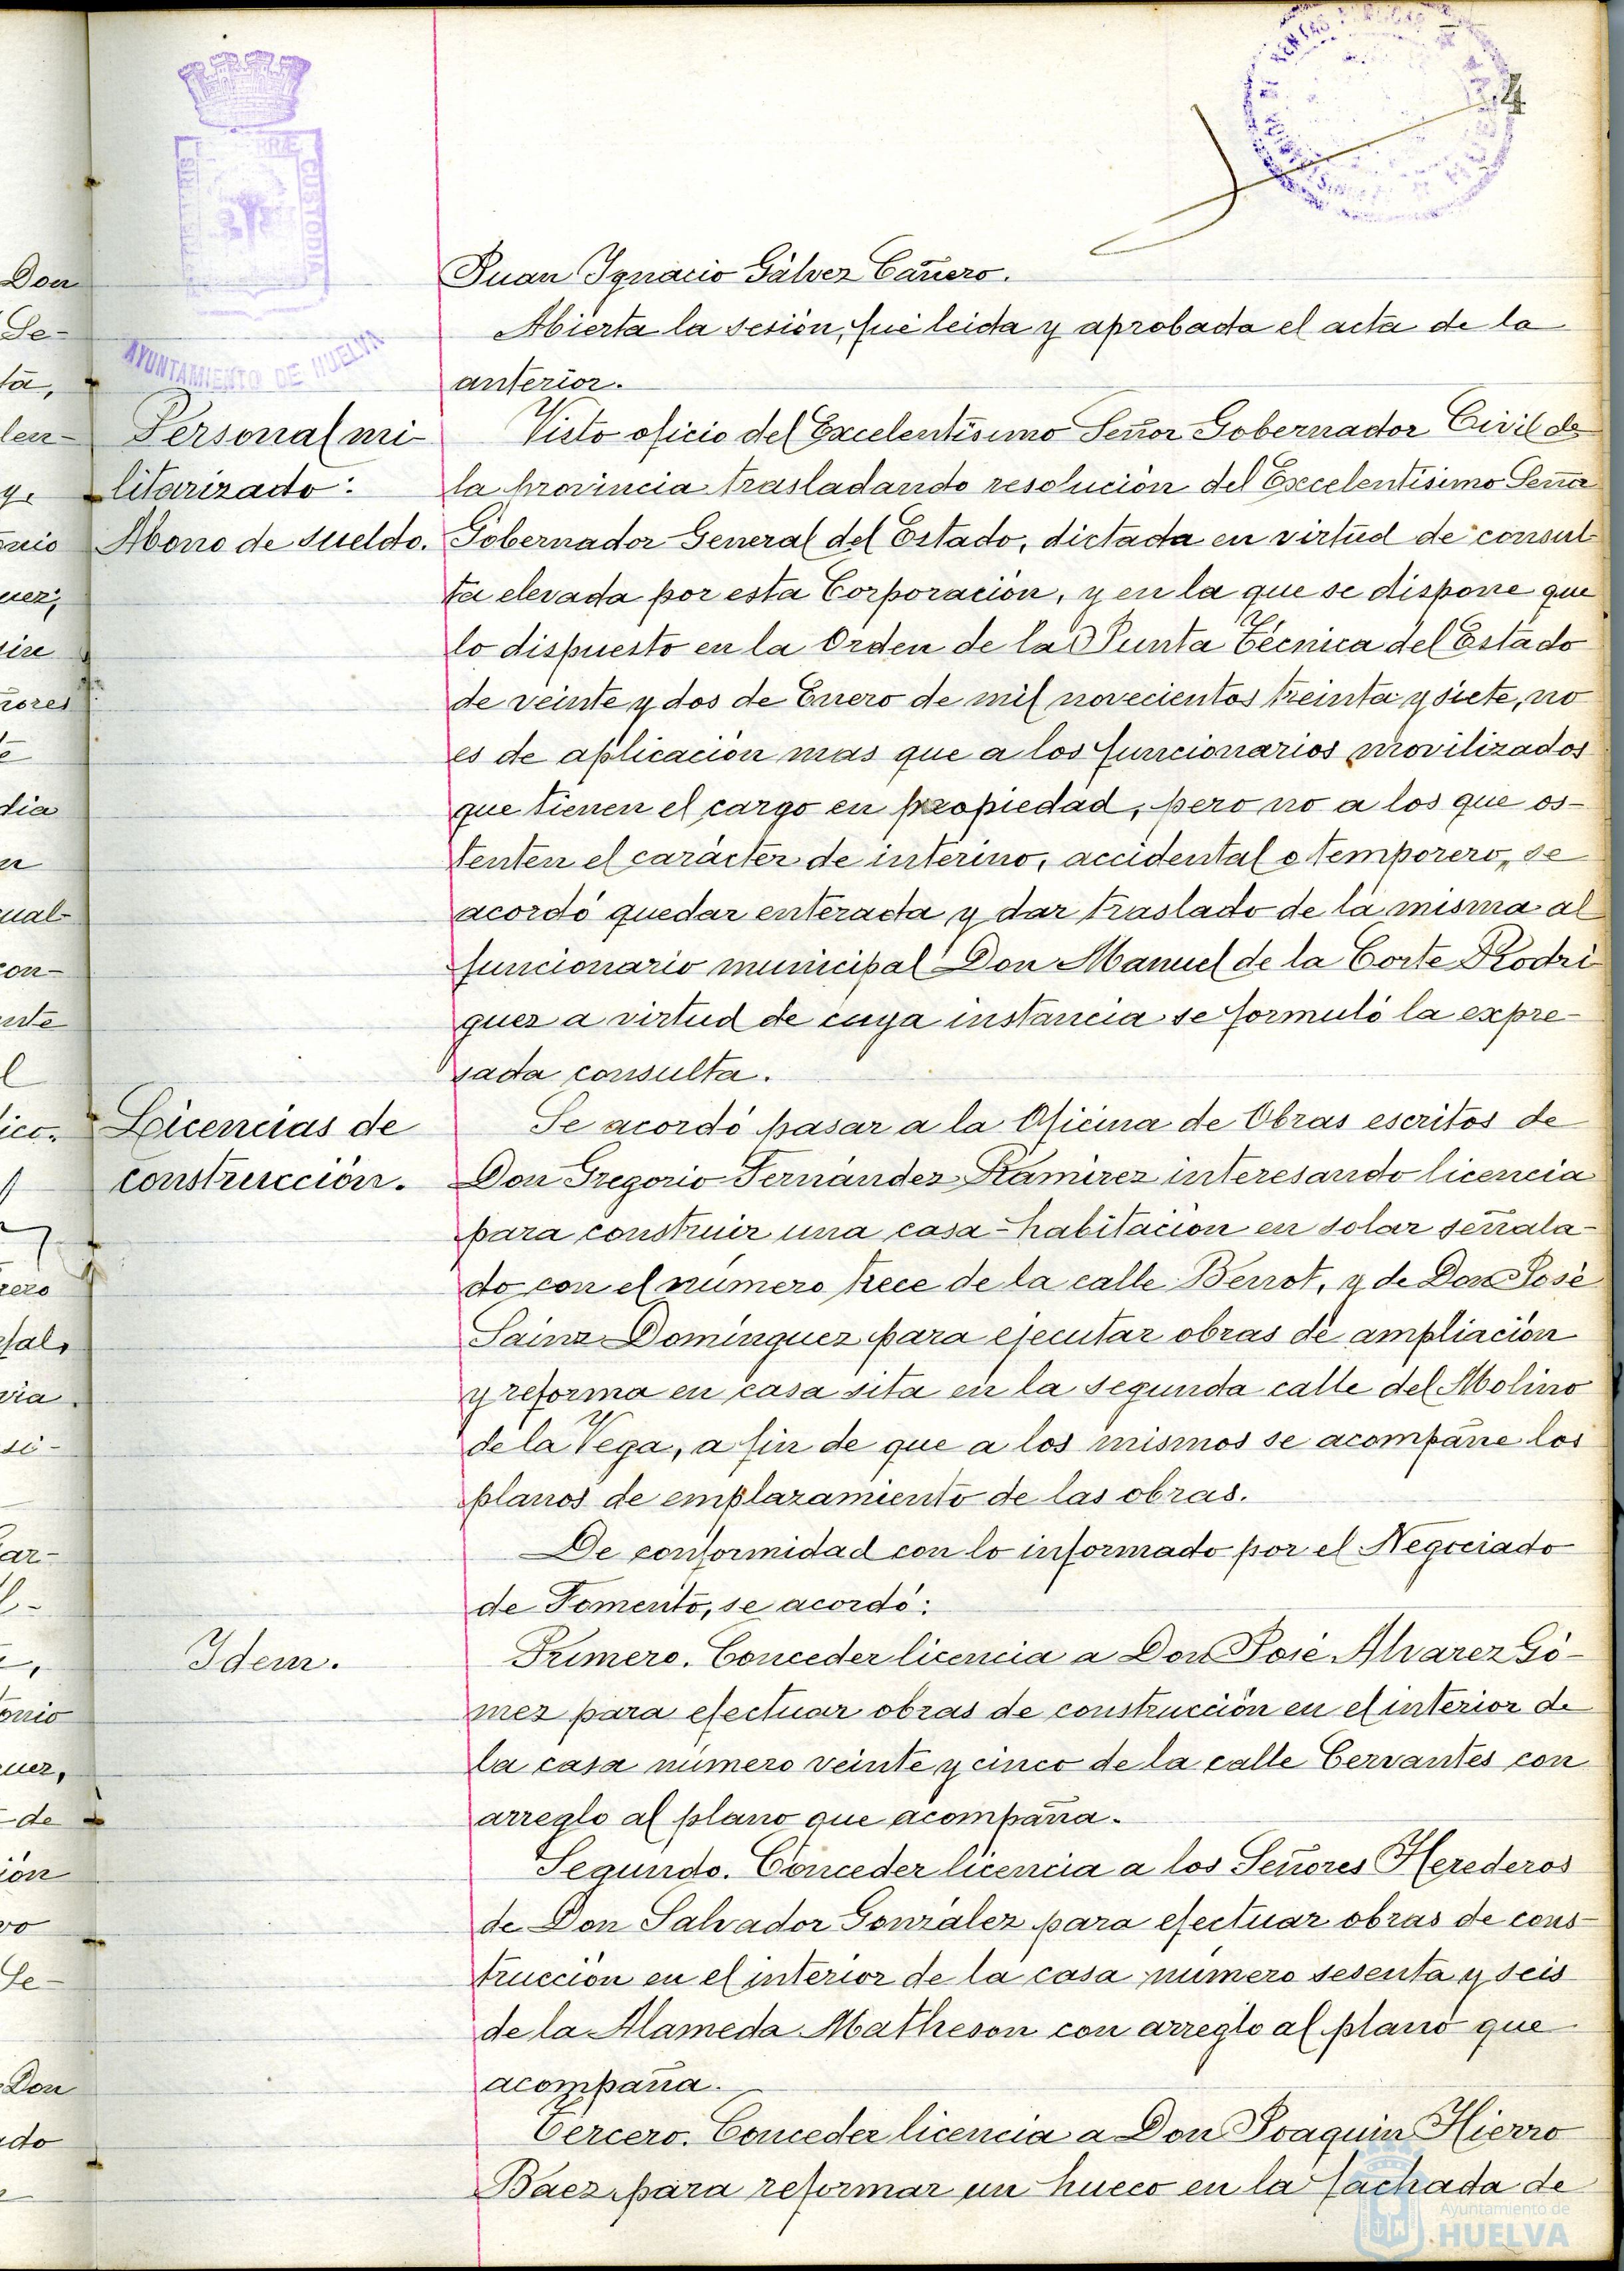 24
PORTUS MARIS TERRÆ CUSTODIA
AYUNTAMIENTO DE HUELVA
Juan Ignacio Gálvez Cañero.
Abierta la sesión, fué leida y aprobada el acta de la
anterior.
Personal mi-
litarizado:
Abono de sueldo.
Visto oficio del Excelentísimo Señor Gobernador Civil de
la provincia trasladando resolución del Excelentísimo Señor
Gobernador General del Estado, dictada en virtud de consul-
ta elevada por esta Corporación, y en la que se dispone que
lo dispuesto en la Orden de la Junta Técnica del Estado
de veinte y dos de Enero de mil novecientos treinta y siete, no
es de aplicación mas que a los funcionarios movilizados
que tienen el cargo en propiedad, pero no a los que os-
tenten el carácter de interino, accidental o temporero, se
acordó quedar enterada y dar traslado de la misma al
funcionario municipal Don Manuel de la Corte Rodri-
guez a virtud de cuya instancia se formuló la expre-
sada consulta.
Licencias de
construcción.
Se acordó pasar a la Oficina de Obras escritos de
Don Gregorio Fernández Ramirez interesando licencia
para construir una casa-habitación en solar señala-
do con el número trece de la calle Berrot, y de Don José
Sainz Dominguez para ejecutar obras de ampliación
y reforma en casa sita en la segunda calle del Molino
de la Vega, a fin de que a los mismos se acompañe los
planos de emplazamiento de las obras.
De conformidad con lo informado por el Negociado
de Fomento, se acordó:
Idem.
Primero. Conceder licencia a Don José Alvarez Gó-
mez para efectuar obras de construcción en el interior de
la casa número veinte y cinco de la calle Cervantes con
arreglo al plano que acompaña.
Segundo. Conceder licencia a los Señores Herederos
de Don Salvador González para efectuar obras de cons-
trucción en el interior de la casa número sesenta y seis
de la Alameda Matheson con arreglo al plano que
acompaña.
Tercero. Conceder licencia a Don Joaquin Hierro
Baez para reformar un hueco en la fachada de
Ayuntamiento de
HUELVA